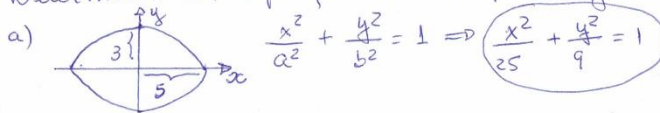 a) y 3 x 5 x²/a² + y²/b² = 1 ⇒ x²/25 + y²/9 = 1